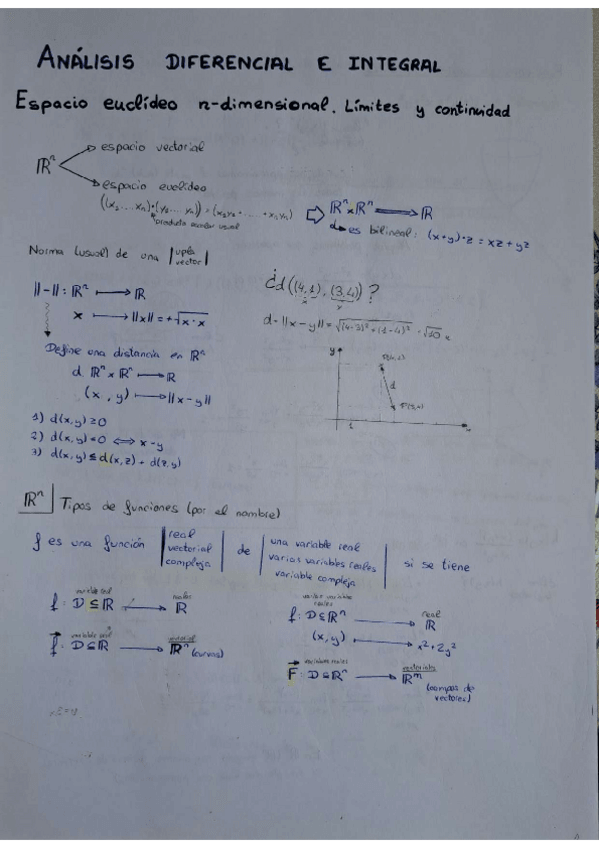 ANÁLISIS DIFERENCIAL E INTEGRAL
Espacio euclídeo n-dimensional. Límites y continuidad
ℝⁿ
espacio vectorial
espacio euclídeo
((x₁ ... xₙ)·(y₁ ... yₙ)) = (x₁y₁ + ... + xₙyₙ)
producto escalar usual
⇨ ℝⁿ×ℝⁿ ⟶ ℝ
es bilineal: (x+y)·z = xz + yz
Norma (usual) de una | upla vector |
||-||: ℝⁿ ⟼ ℝ
x ⟼ ||x|| = +√x·x
Define una distancia en ℝⁿ
d: ℝⁿ×ℝⁿ ⟶ ℝ
(x, y) ⟼ ||x-y||
1) d(x,y) ≥ 0
2) d(x,y) = 0 ⟺ x=y
3) d(x,y) ≤ d(x,z) + d(z,y)
¿d((4,1), (3,4))?
x y
d = ||x-y|| = √(4-3)² + (1-4)² = √10
y
d
1
ℝⁿ | Tipos de funciones (por el nombre)
f es una función | real vectorial compleja | de | una variable real varias variables reales variable compleja | si se tiene
variable real reales
f: D ⊆ ℝ ⟶ ℝ
variable real vectorial
f⃗: D ⊆ ℝ ⟶ ℝⁿ (curvas)
varias variables reales real
f: D ⊆ ℝⁿ ⟶ ℝ
(x, y) ⟶ x² + 2y²
variables reales vectoriales
F⃗: D ⊆ ℝⁿ ⟶ ℝᵐ
(campos de vectores)